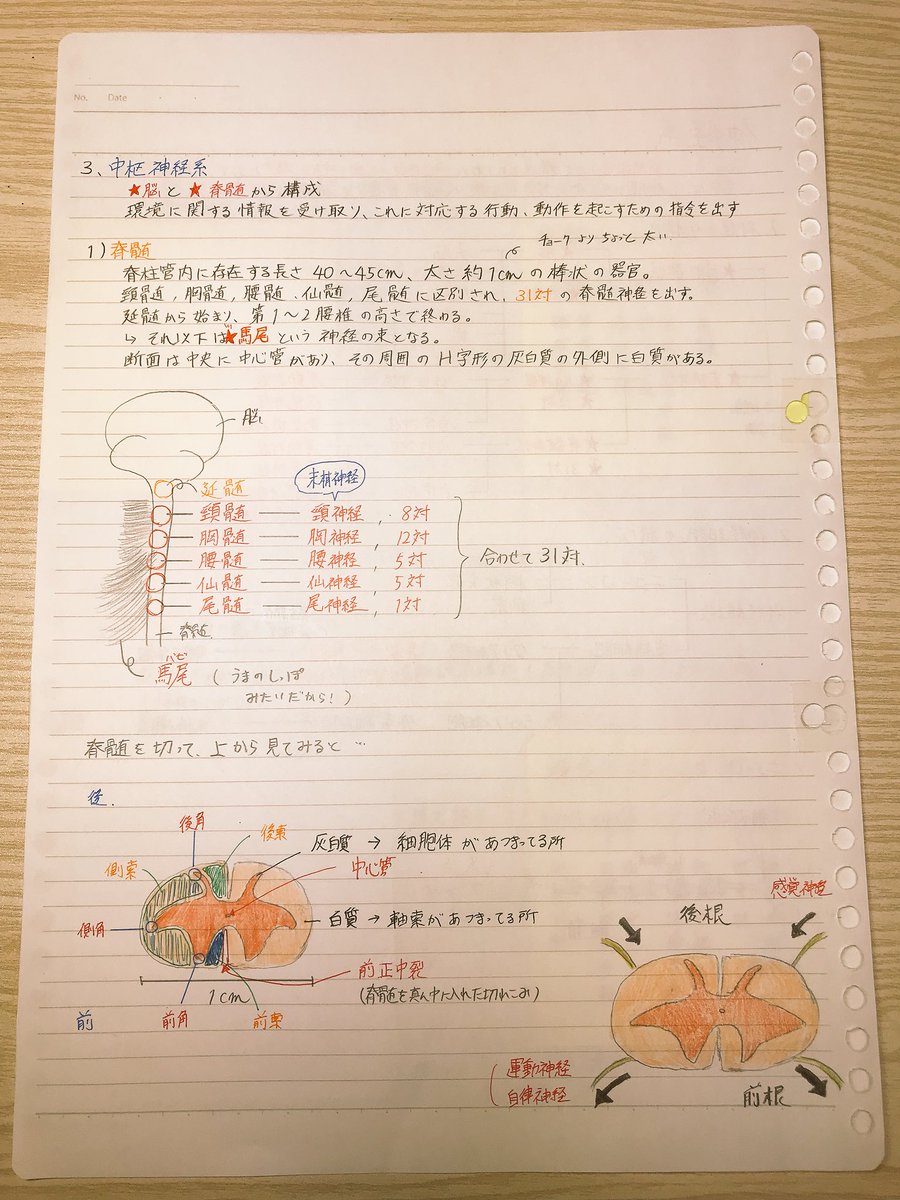 No. Date
3、中枢神経系
★脳と★脊髄から構成
環境に関する情報を受け取り、これに対応する行動、動作を起こすための指令を出す
1）脊髄
チョークよりちょっと太い..
脊柱管内に存在する長さ40〜45cm、太さ約1cmの棒状の器官。
頸髄，胸髄，腰髄、仙髄，尾髄に区別され、31対の脊髄神経を出す。
延髄から始まり、第1〜2腰椎の高さで終わる。
↳それ以下は★馬尾という神経の束となる。
断面は中央に中心管があり、その周囲のH字形の灰白質の外側に白質がある。
脳
延髄
末梢神経
頸髄 頸神経，8対
胸髄 胸神経，12対
腰髄 腰神経，5対
仙髄 仙神経，5対
尾髄 尾神経，1対
合わせて31対.
脊髄
バビ
馬尾（うまのしっぽ
みたいだから！）
脊髄を切って、上から見てみると…
後.
後角
後索
側索
灰白質→細胞体があつまってる所
中心管
側角
白質→軸索があつまってる所
前正中裂
（脊髄を真ん中に入れた切れこみ）
1cm
前
前角
前索
感覚神経
後根
運動神経
自律神経
前根